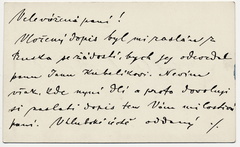 Velevážená paní!
Vložený dopis byl mi zaslán z
Ruska se žádostí, bych jej odevzdal
panu Janu Kubelíkovi. Nevím
však, kde nyní dlí a proto dovoluji
si poslati dopis ten Vám milostivá
paní. V hluboké úctě oddaný